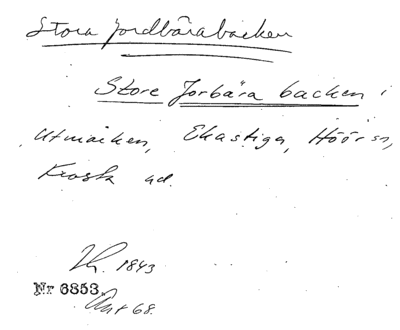 Stora Jordbärabacken
Store Jorbära backen i
Utmarken, Ekastiga, Höör sn,
Frosta hd.
Lh. 1843
Nr 6853. Ant 68.